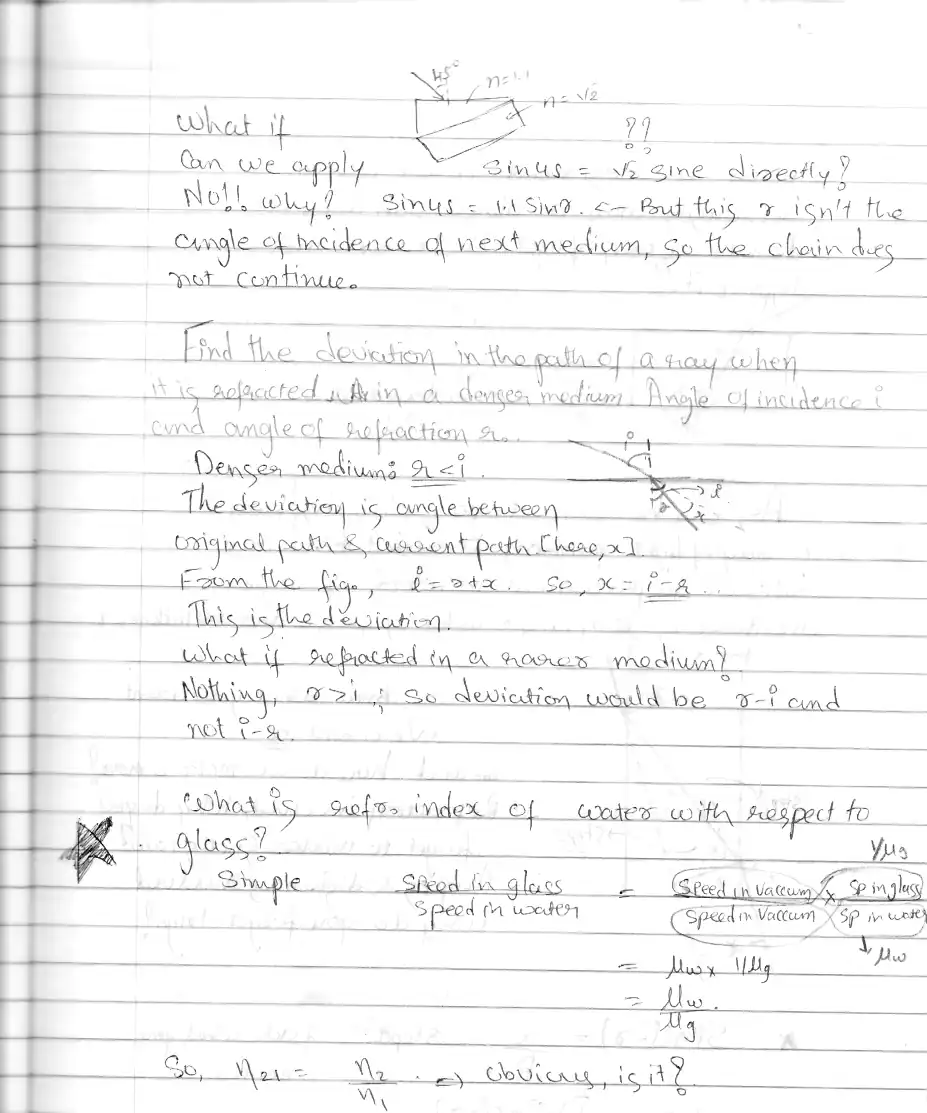 45°
n=1.1
n=√2
What if
??
Can we apply sin45 = √2 sine directly?
No!! why? sin45 = 1.1 sinr. <- But this r isn't the
angle of incidence of next medium, so the chain does
not continue.
Find the deviation in the path of a ray when
it is refracted in a denser medium. Angle of incidence i
and angle of refraction r.
i
Denser medium: r<i.
The deviation is angle between
r
x
original path & current path. [here, x].
From the fig., i = r+x. so, x = i-r..
This is the deviation.
What if refracted in a rarer medium?
Nothing, r>i; so deviation would be r-i and
not i-r.
What is refr. index of water with respect to
glass?
1/μg
Simple. Speed in glass = Speed in Vaccum x Sp in glass
Speed in water Speed in Vaccum Sp in water
↓ μw
= μw x 1/μg
= μw.
μg
So, n21 = n2 . => obvious, is it?
n1